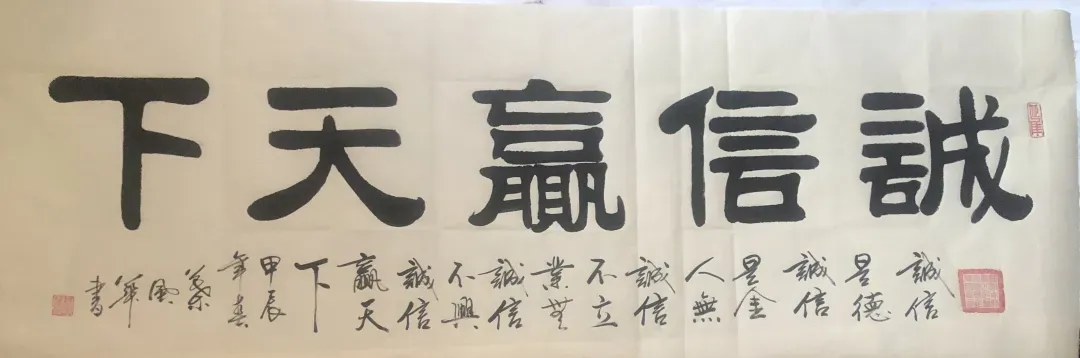 誠信贏天下
誠信
是德
誠信
是金
人無
誠信
不立
業無
誠信
不興
誠信
贏天
下
甲辰
年春
風
書